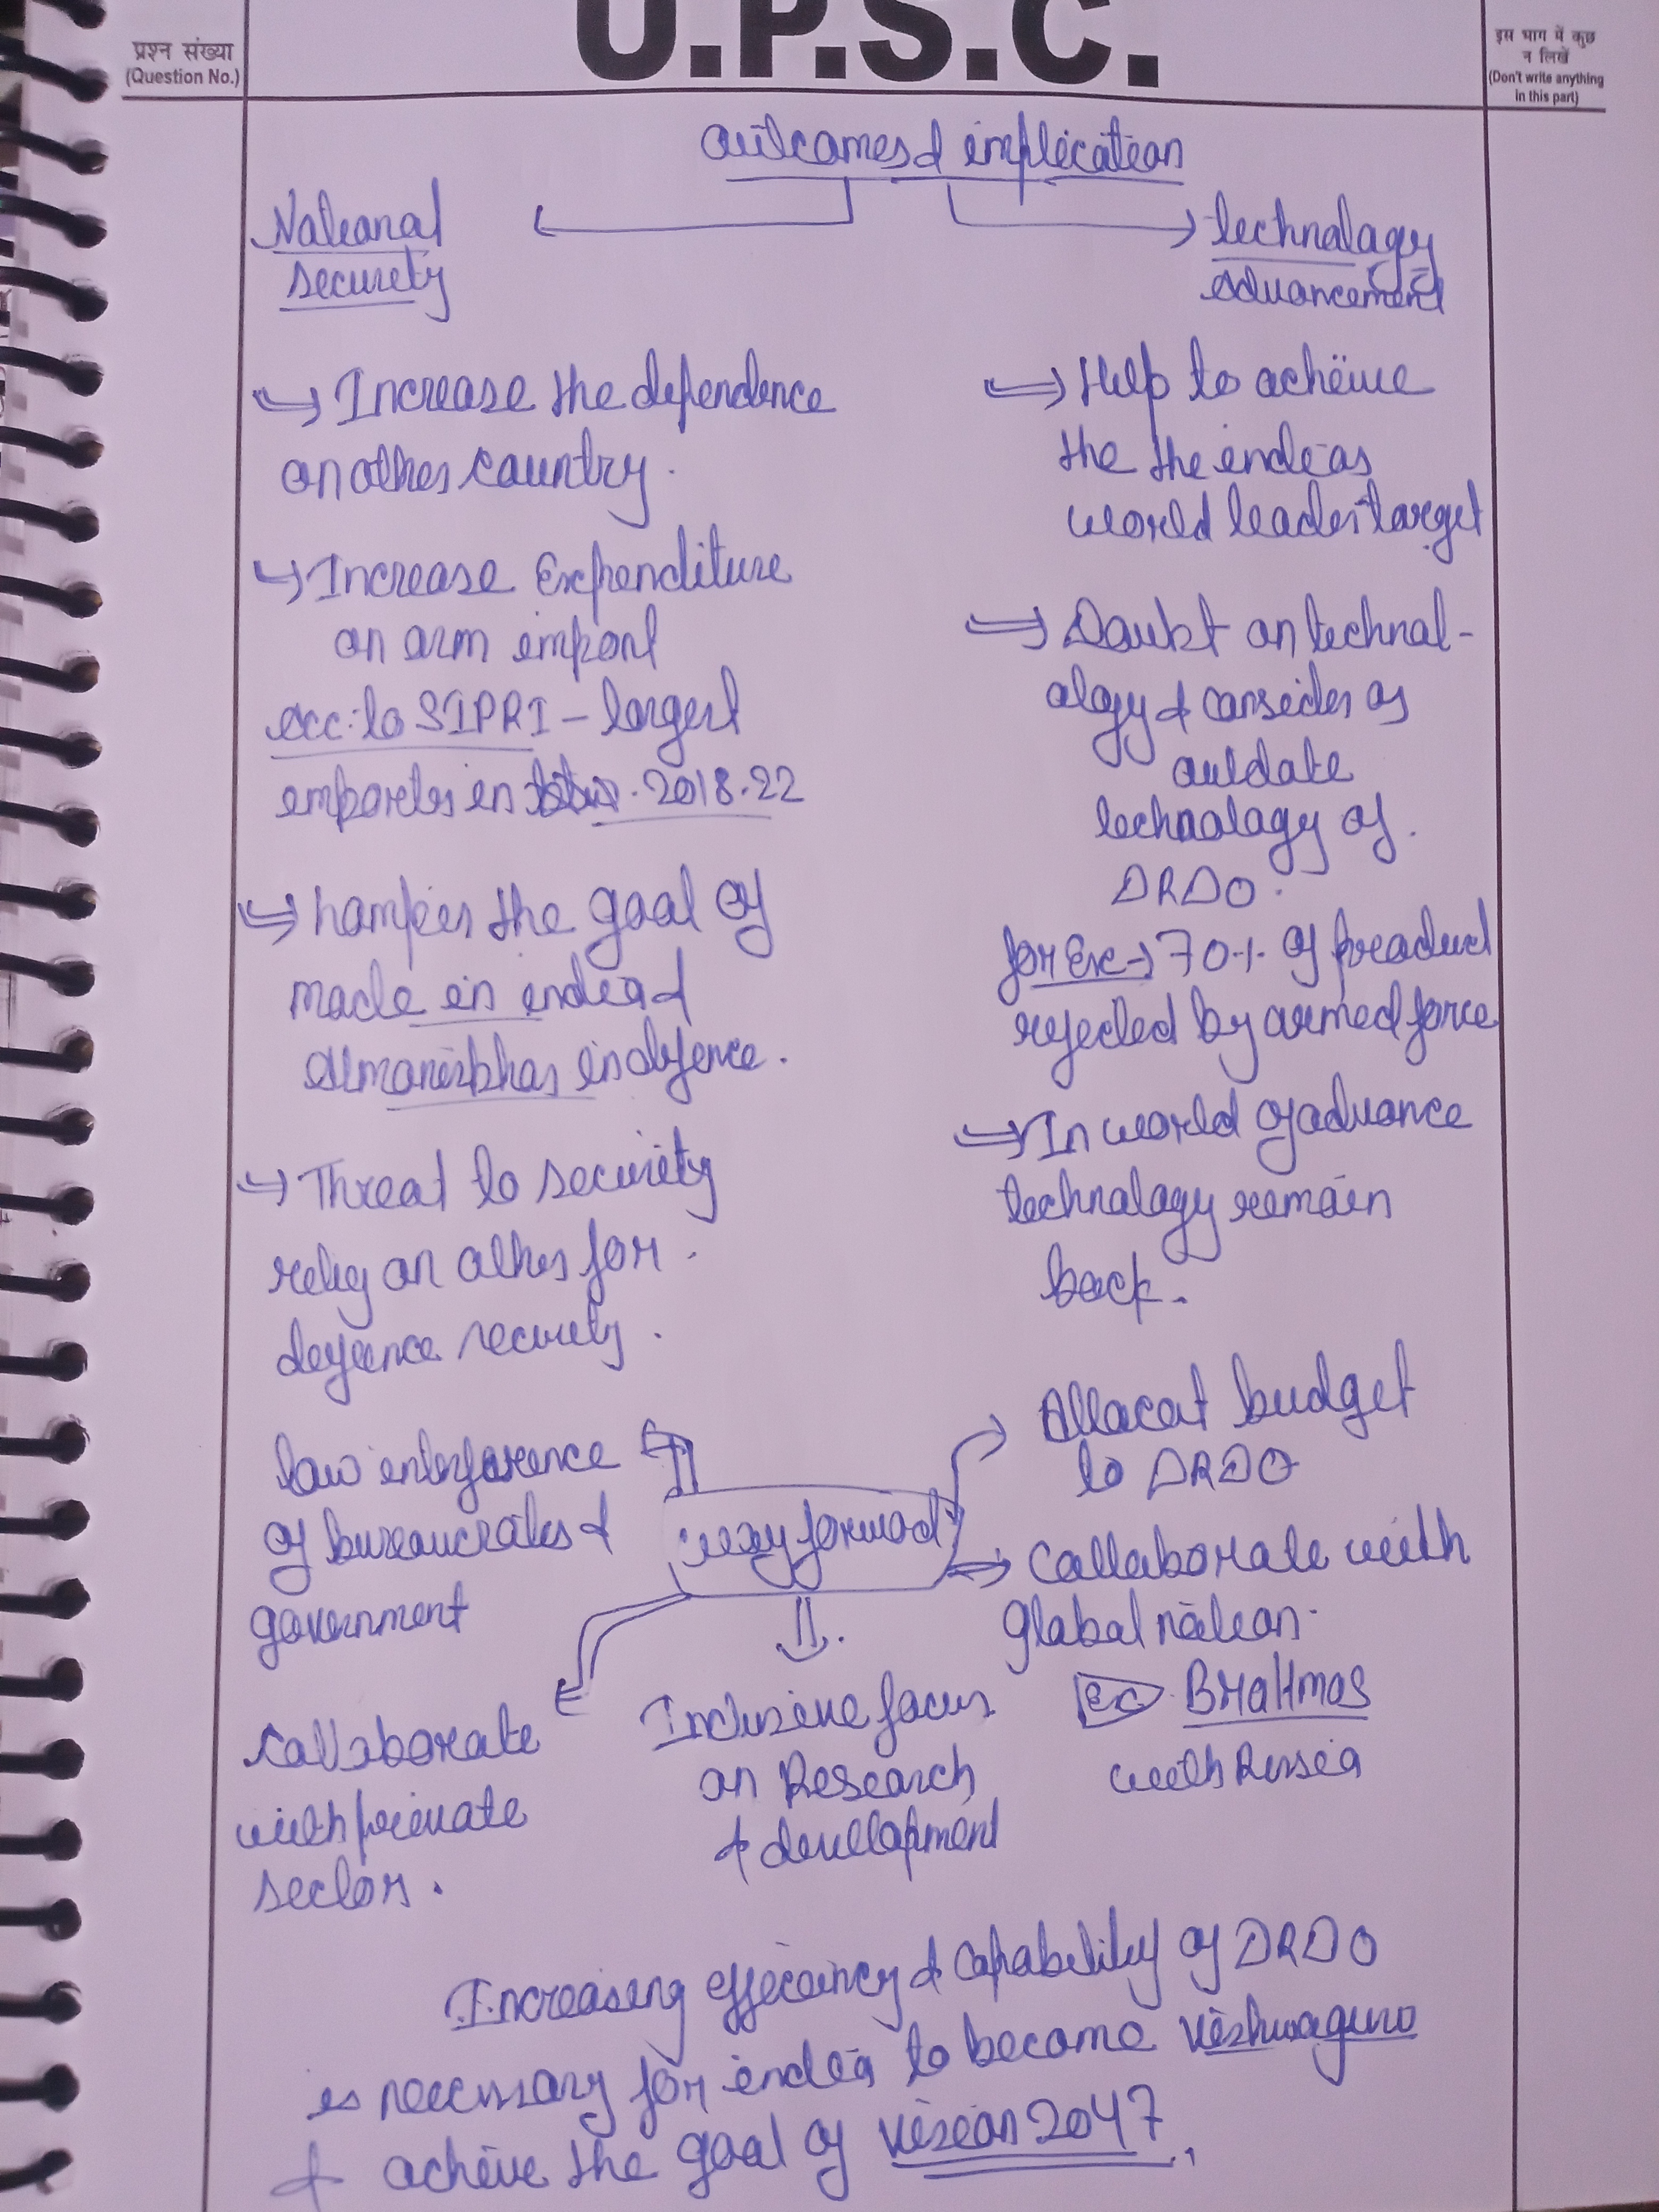 U.P.S.C.
प्रश्न संख्या
(Question No.)
इस भाग में कुछ
न लिखें
(Don't write anything
in this part)
outcomes & implication
National
security
→ Increase the dependence
on other country.
→ Increase Expenditure
on arm import
acc: to SIPRI - largest
importer in 2018-22
→ hampers the goal of
made in india &
Atmanirbhar in defence.
→ Threat to security
rely on other for
defence security.
technology
advancement
→ Help to achieve
the the india as
world leader target
→ Doubt on technol-
ology & consider as
outdate
technology of
DRDO.
for Ex → 70% of product
rejected by armed force
→ In world of advance
technology remain
back.
way forward
low interference
of bureaucrates &
government
Allocat budget
to DRDO
collaborate with
global nation.
Ex BRaHmos
with Russia
Inclusive focus
on Research
& development
collaborate
with private
sector.
Increasing efficiency & capability of DRDO
is necessary for india to become vishwaguru
& achieve the goal of vision 2047.